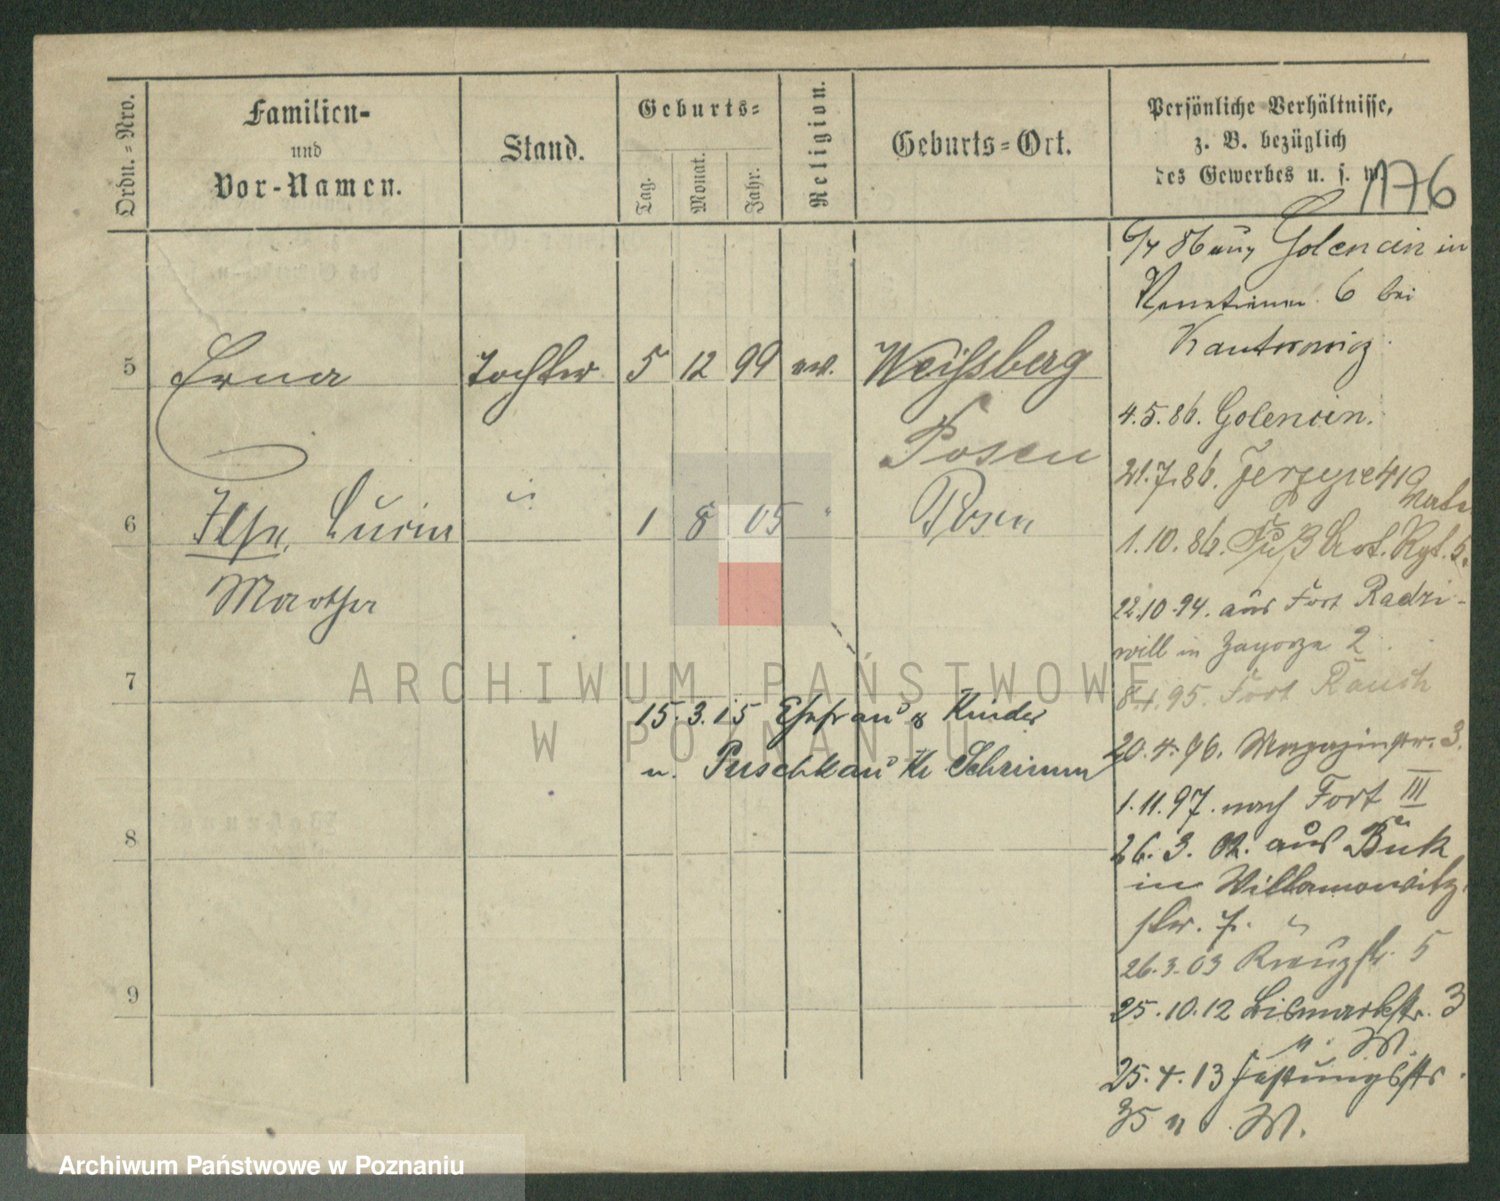 Ordn.-Nro.
Familien-
und
Vor-Namen.
Stand.
Geburts-
Tag.
Monat.
Jahr.
Religion.
Geburts-Ort.
Persönliche Verhältnisse,
z. B. bezüglich
des Gewerbes u. s. w.
1176
5
Erna
Tochter
5 12 99 ev.
Weissberg
Posen
6
Ilse, Lucia
Martha
"
1 8 05 "
Posen
7
15.3.15 Ehefrau & Kinder
n. Puschkau Kr Schrimm
8
9
6/4 86 aus Golencin in
6 bei
Kantorowicz
4.5.86. Golencin.
21.7.86. Jerzyce 419
1.10.86. Fuß Art. Rgt. 5.
22.10.94. aus Fort Radzi-
will in Zagorze 2.
8.4.95. Fort Rauch
20.4.96. Magazinstr. 3.
1.11.97. nach Fort III
26.3.02. aus Buk
in Willamowitz
str. 7.
26.3.03 Kreuzstr. 5
25.10.12 Bismarkstr. 3
n. W.
25.4.13 Festungsstr.
35 n. W.
ARCHIWUM PAŃSTWOWE
W POZNANIU
Archiwum Państwowe w Poznaniu